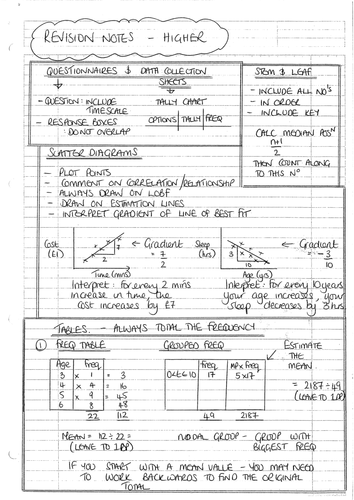 REVISION NOTES - HIGHER
QUESTIONNAIRES & DATA COLLECTION
SHEETS
- QUESTION: INCLUDE
TIMESCALE
- RESPONSE BOXES
: DO NOT OVERLAP
TALLY CHART
OPTIONS | TALLY | FREQ
STEM & LEAF
- INCLUDE ALL NO'S
- IN ORDER
- INCLUDE KEY
CALC MEDIAN
n+1
2
THEN COUNT ALONG
TO THIS NO
SCATTER DIAGRAMS
- PLOT POINTS
- COMMENT ON CORRELATION/RELATIONSHIP
- ALWAYS DRAW ON LOBF
- DRAW ON ESTIMATION LINES
- INTERPRET GRADIENT OF LINE OF BEST FIT
Cost
(£1)
7
2
Time (mins)
← Gradient
= 7
2
Interpret: for every 2 mins
increase in time, the
cost increases by £7
Sleep
(hrs)
3
10
Age (yrs)
← Gradient
= -3
10
Interpret: for every 10 years
your age increases, your
sleep decreases by 3 hrs
TABLES - ALWAYS TOTAL THE FREQUENCY
① FREQ TABLE
Age | Freq
3 x 1 = 3
4 x 4 = 16
5 x 9 = 45
6 8 48
22 112
GROUPED FREQ
Freq | MP x Freq
0≤t≤10 | 17 | 5x17
49 2187
ESTIMATE
THE
MEAN
= 2187÷49
(LEAVE TO 1DP)
MEAN = 112÷22 =
(LEAVE TO 1DP)
MODAL GROUP - GROUP WITH
BIGGEST FREQ
IF YOU START WITH A MEAN VALUE - YOU MAY NEED
TO WORK BACKWARDS TO FIND THE ORIGINAL
TOTAL